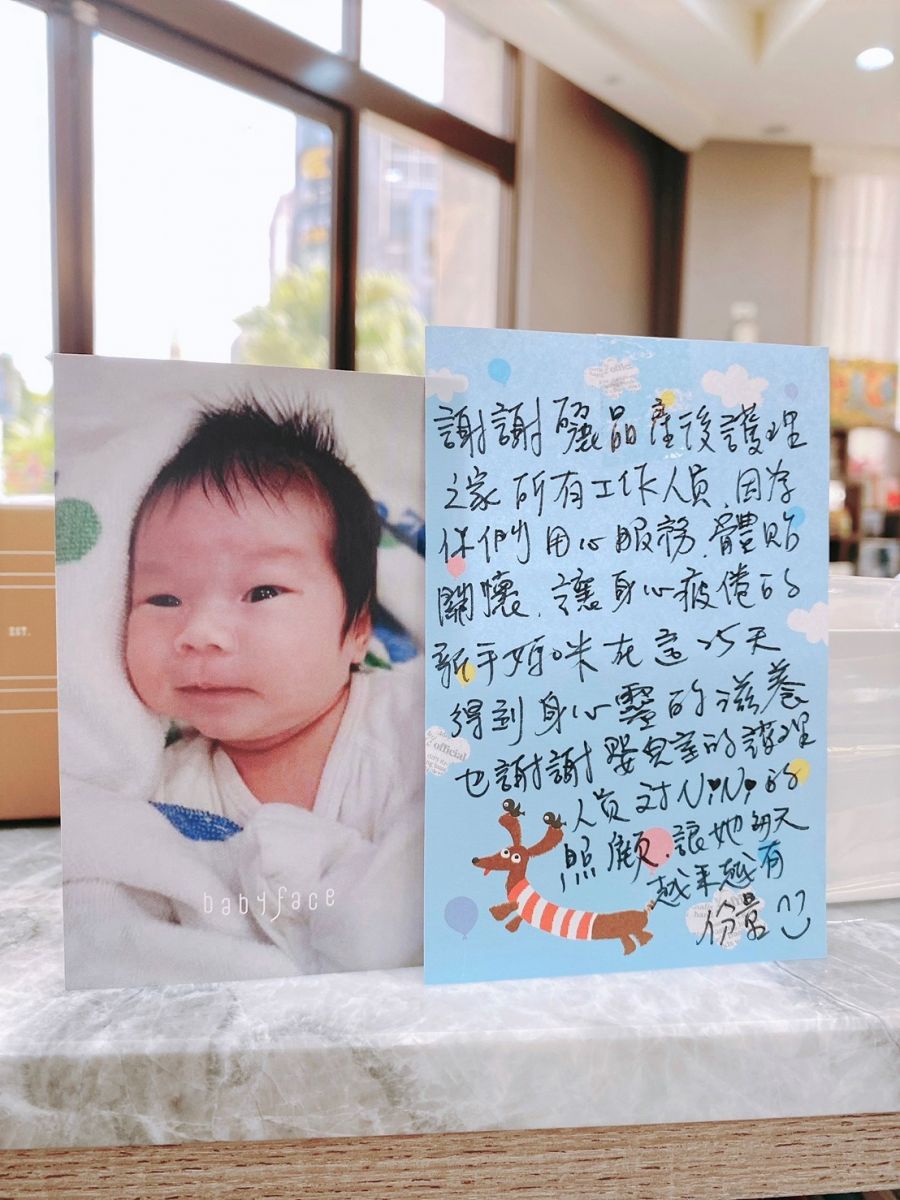 謝謝 麗品產後護理
之家 所有工作人員,因為
你們用心服務、體貼
關懷、讓身心疲倦的
新手媽咪在這25天
得到身心靈的滋養
也謝謝嬰兒室的護理
人員對NiNi的
照顧,讓她每天
越來越有
份量
babyface
EST.
official